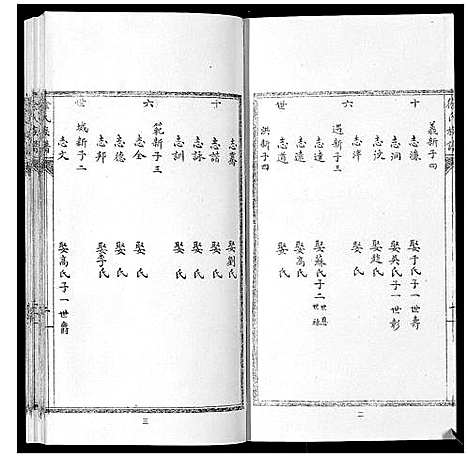 徐氏族譜
十六世
義新子四
志濂 娶于氏子一世壽
志洞 娶吳氏子一世彰
志汶 娶趙氏
志泮 娶 氏
遇新子三
志達 娶蘇氏子二世恩 世祿
志遠 娶高氏
志道 娶 氏
洪新子四
二
十六世
志騫 娶劉氏
志誥 娶 氏
志詠 娶 氏
志訓 娶 氏
範新子三
志全 娶 氏
志德 娶 氏
志邦 娶李氏
城新子二
志文 娶高氏子一世爵
三